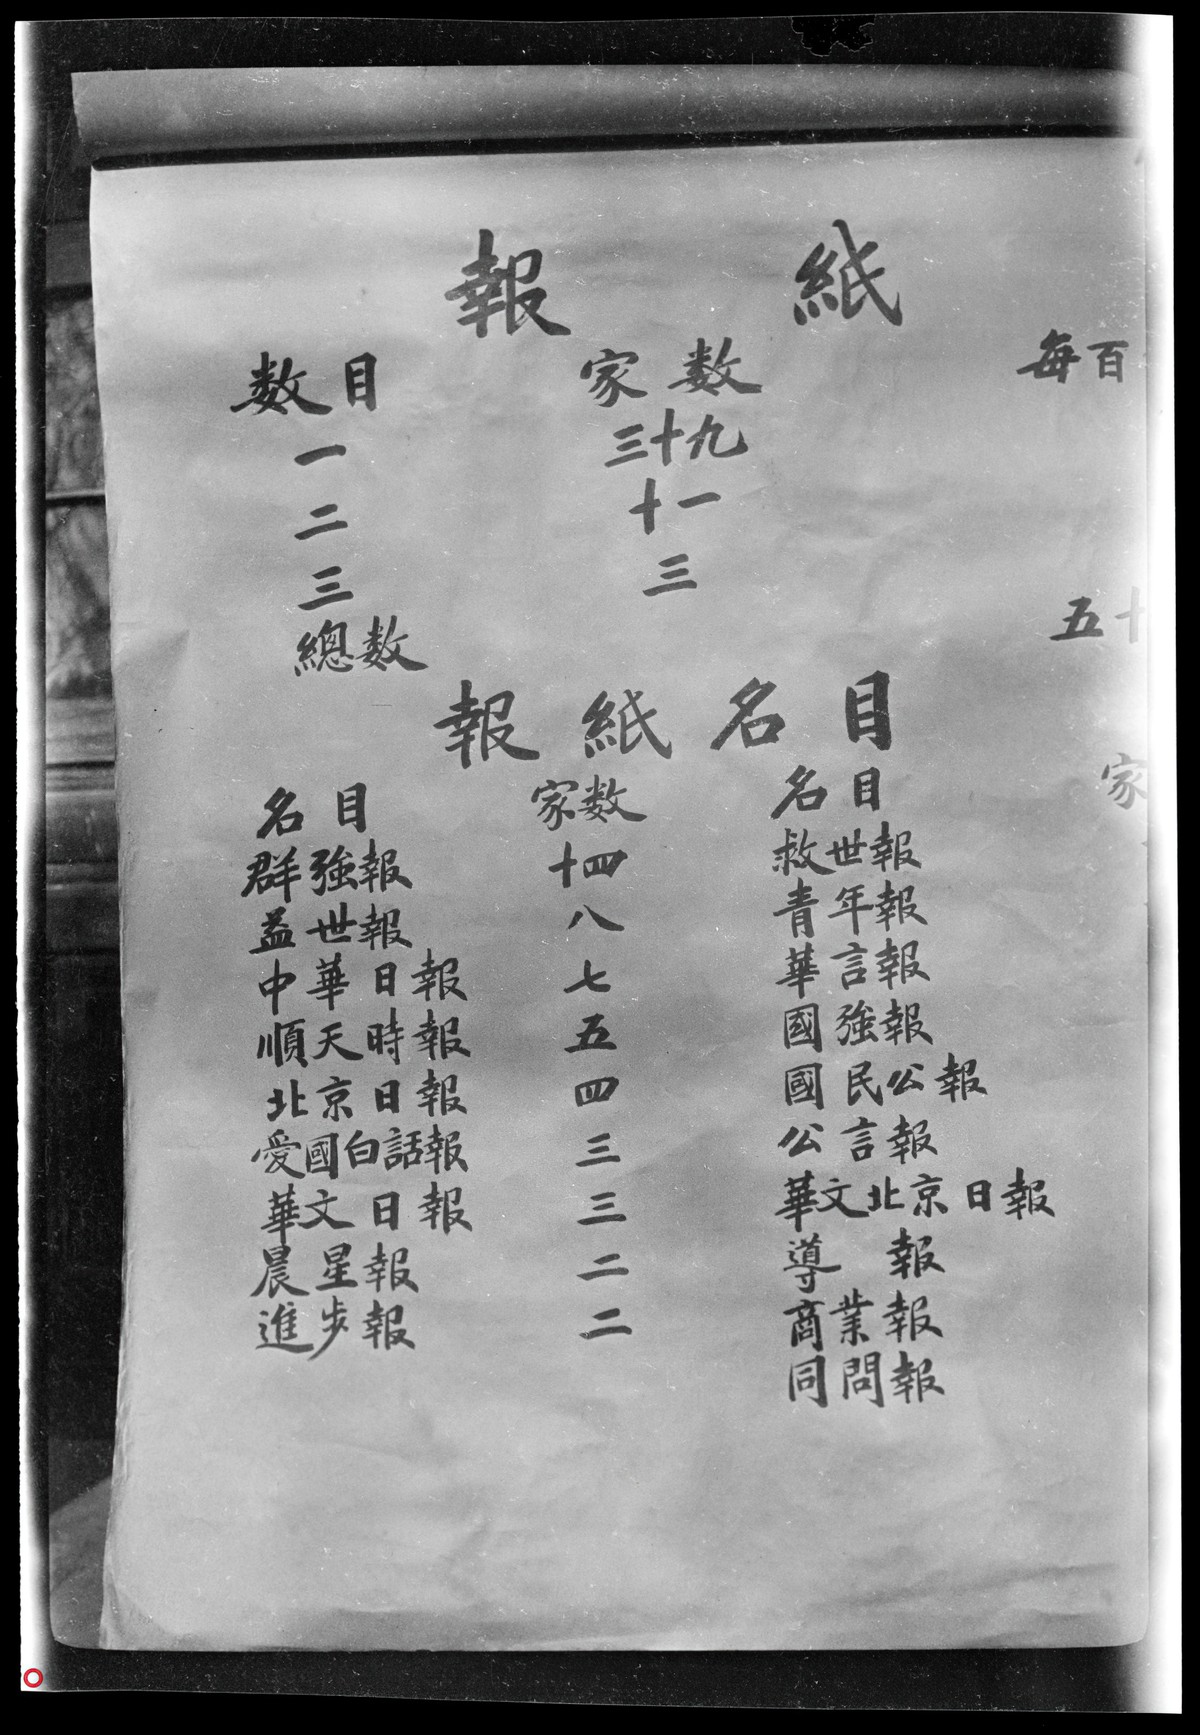 報 紙
数目 家数 每百
一 三十九
二 十一
三 三
總数 五十
報紙名目
名目 家数 名目 家
群強報 十四 救世報
益世報 八 青年報
中華日報 七 華言報
順天時報 五 國強報
北京日報 四 國民公報
愛國白話報 三 公言報
華文日報 三 華文北京日報
晨星報 二 導報
進步報 二 商業報
同問報